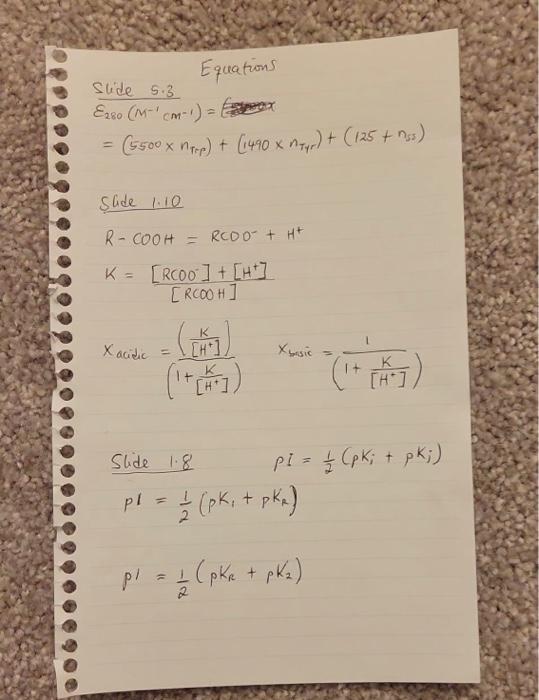 Equations
Slide 5.3
ε₂₈₀ (M⁻¹ cm⁻¹) =
= (5500 x n_Trp) + (1490 x n_Tyr) + (125 + n_SS)
Slide 1.10
R - COOH = RCOO⁻ + H⁺
K = [RCOO⁻] + [H⁺] / [RCOOH]
x_acidic = (K / [H⁺]) / (1 + K / [H⁺]) x_basic = 1 / (1 + K / [H⁺])
Slide 1.8 pI = 1/2 (pKᵢ + pKⱼ)
pI = 1/2 (pK₁ + pK_R)
pI = 1/2 (pK_R + pK₂)